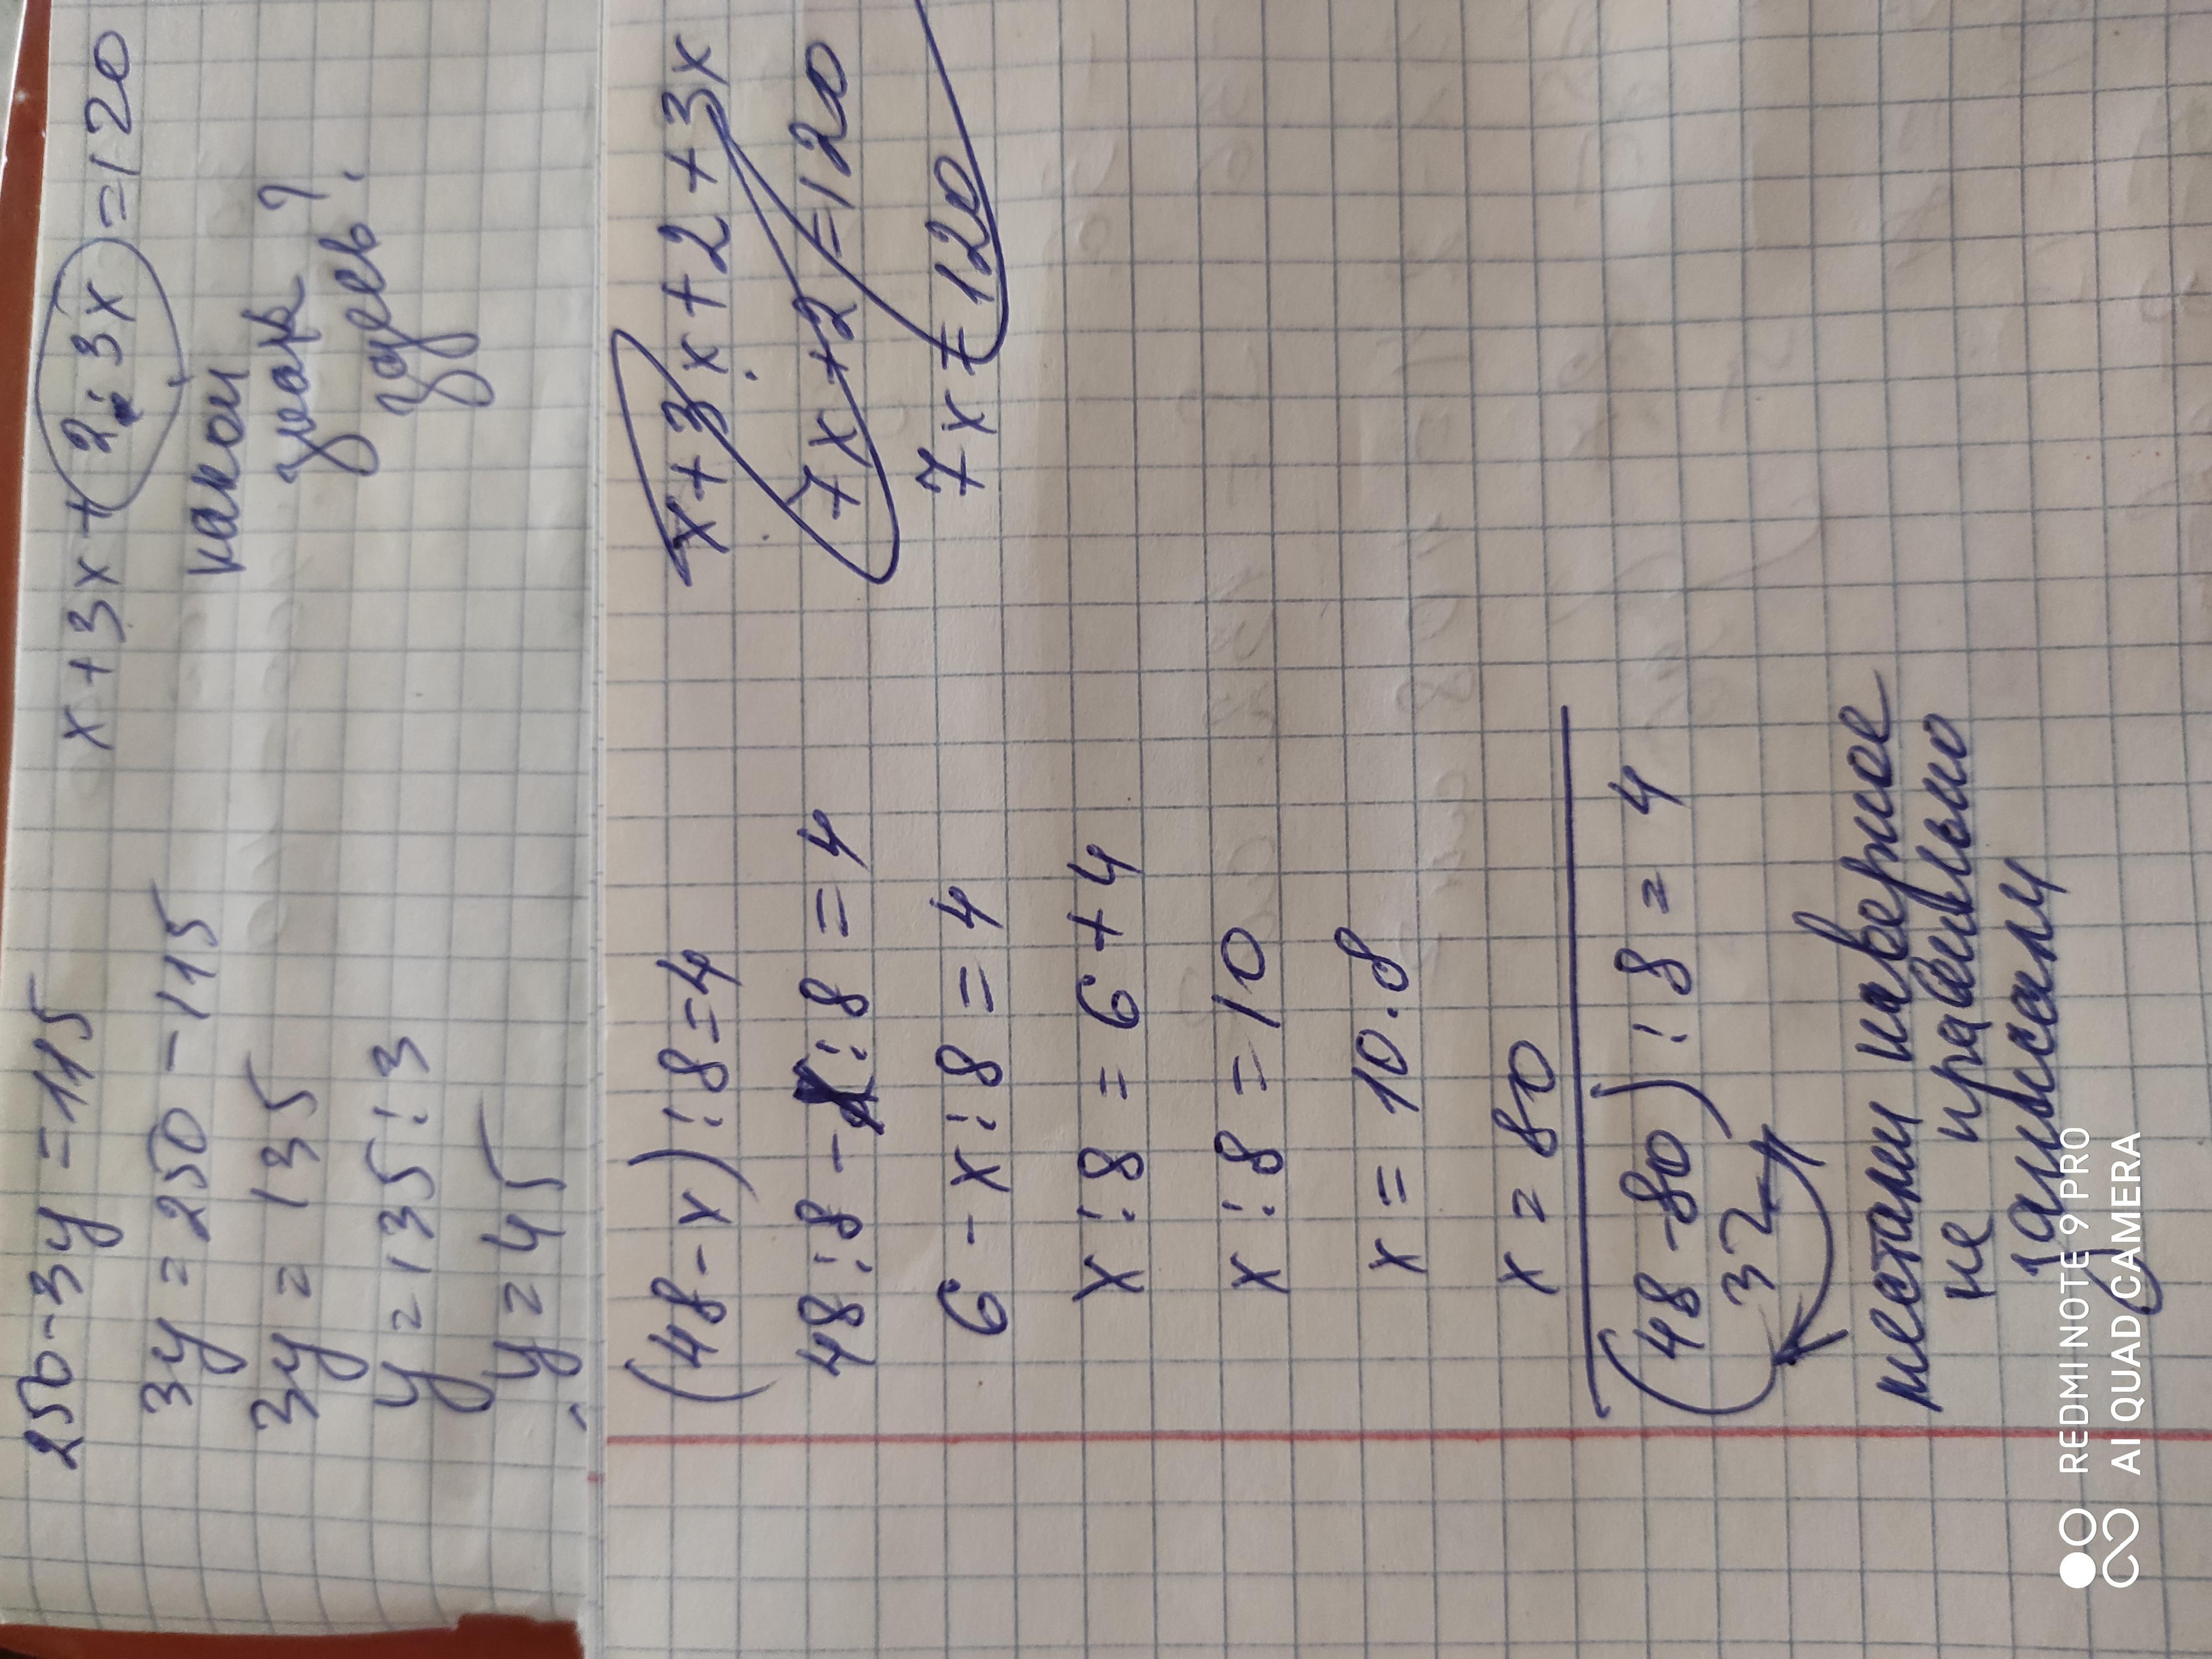 250-3y=115
3y=250-115
3y=135
y=135:3
y=45
x+3x+2.3x=120
какой
знак
здесь?
(48-x):8=4
48:8-x:8=4
6-x:8=4
x:8=6+4
x:8=10
x=10.8
x=80
(48-80):8=4
32
местами наверное
не правильно
записали
x+3x+2+3x
7x+2=120
7x=120
REDMI NOTE 9 PRO
AI QUAD CAMERA